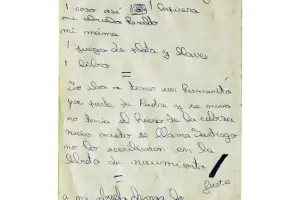 1 cosa asi 1 lapicera
mi abuelo
mi máma
1 juego de plata y llaves
1 libro
=
Yo iba a tener un hermanito
por parte de Padre y se murio
no tenia el hueso de la cabeza
nacio muerto se llama Santiago
no lo escribieron en la
libreta de nacimiento
=
a mi abuela